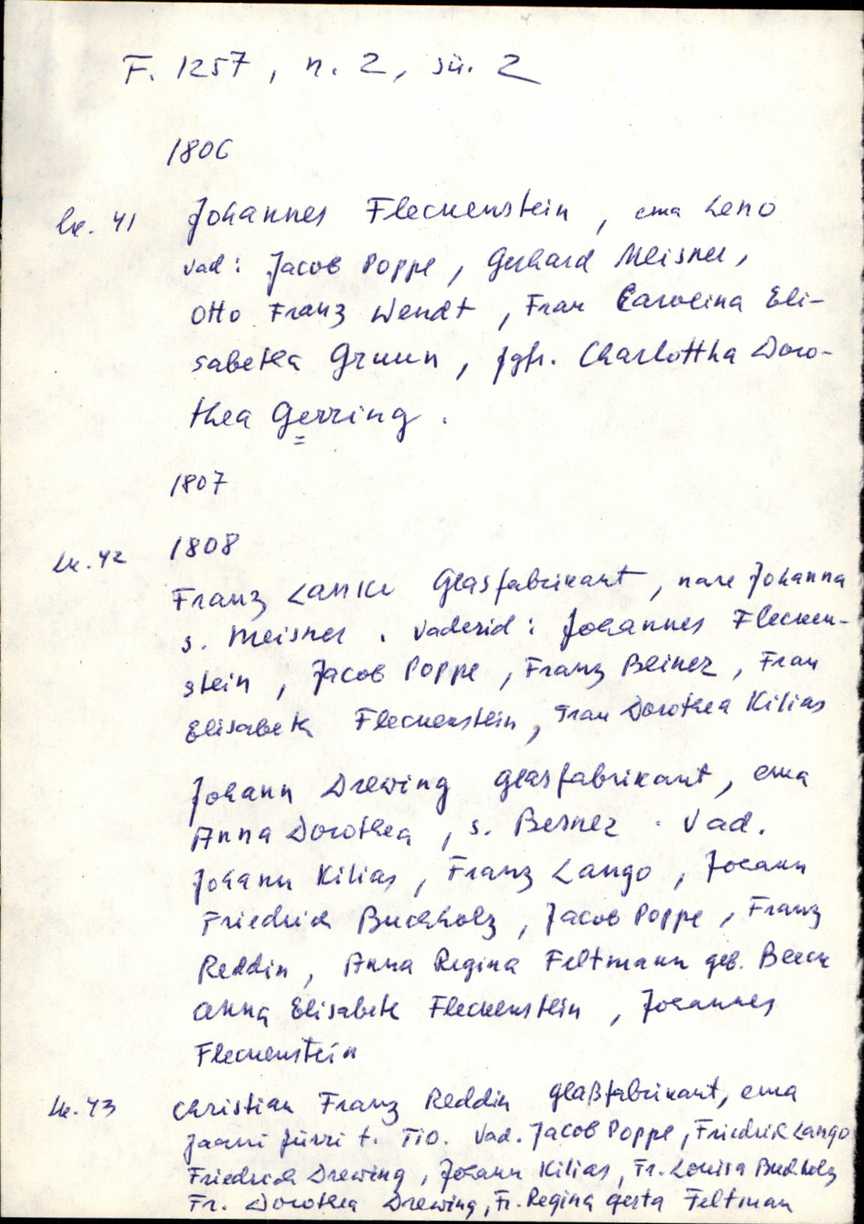 F. 1257, n. 2, sü. 2
1806
lk. 41 Johannes Fleckenstein, ema Leno
vad: Jacob Poppe, Gerhard Meisner,
Otto Franz Wendt, Frau Carolina Eli-
sabetha Gruun, jgfr. Charlottha Doro-
thea Gerring.
1807
lk. 42 1808
Franz Lanku Glasfabrikant, nare Johanna
s. Meisner. Vaderid: Johannes Flecken-
stein, Jacob Poppe, Franz Beinez, Frau
Elisabeth Fleckenstein, Frau Dorothea Kilias
Johann Drewing Glasfabrikant, ema
Anna Dorothea, s. Besnez. Vad.
Johann Kilias, Franz Lango, Johann
Friedrich Buchholz, Jacob Poppe, Franz
Reddin, Anna Regina Feltmann geb. Beeck
Anna Elisabeth Fleckenstein, Johannes
Fleckenstein
lk. 43 Christian Franz Reddin glaßfabrikant, ema
Jaani Jürri t. Tio. Vad. Jacob Poppe, Friedrich Lango
Friedrich Drewing, Johann Kilias, Fr. Louisa Buchholz
Fr. Dorothea Drewing, Fr. Regina Gerta Feltman